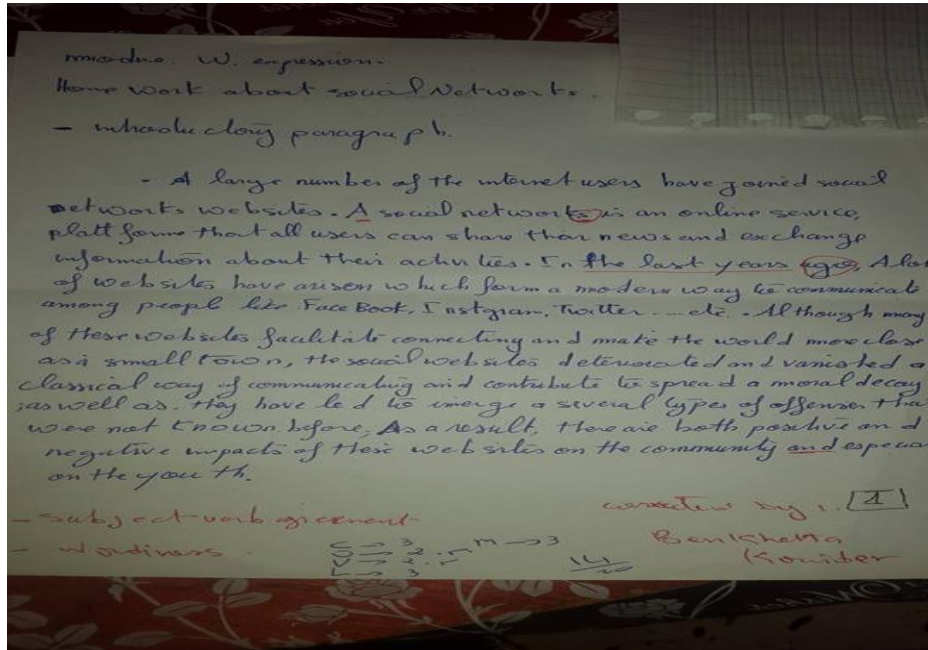 module. W. expression.
Home work about social Networks.
- introductory paragraph.
- A large number of the internet users have joined social
networks websites. A social networks is an online service,
platt forme that all users can share their news and exchange
information about their activities. In the last years ago, A lot
of websites have arisen which form a modern way to communicate
among peopl like FaceBook, Instgram, Twitter...etc. Although many
of these websites facilitate connecting and make the world more close
as a small town, the social websites deteriorated and vanished a
classical way of communicating and contribute to spread a moral decay
; as well as. they have led to emerge a several types of offenses tha
were not known before, As a result, there are both positive and
negative impacts of these web sites on the community and especia
on the youth.
- subject verb agreement
- wordiness.
corrected by 1. 1
Benkhetta
Kouider
C → 3 m → 3
O → 2.5
V → 2.5
L → 3
14/20